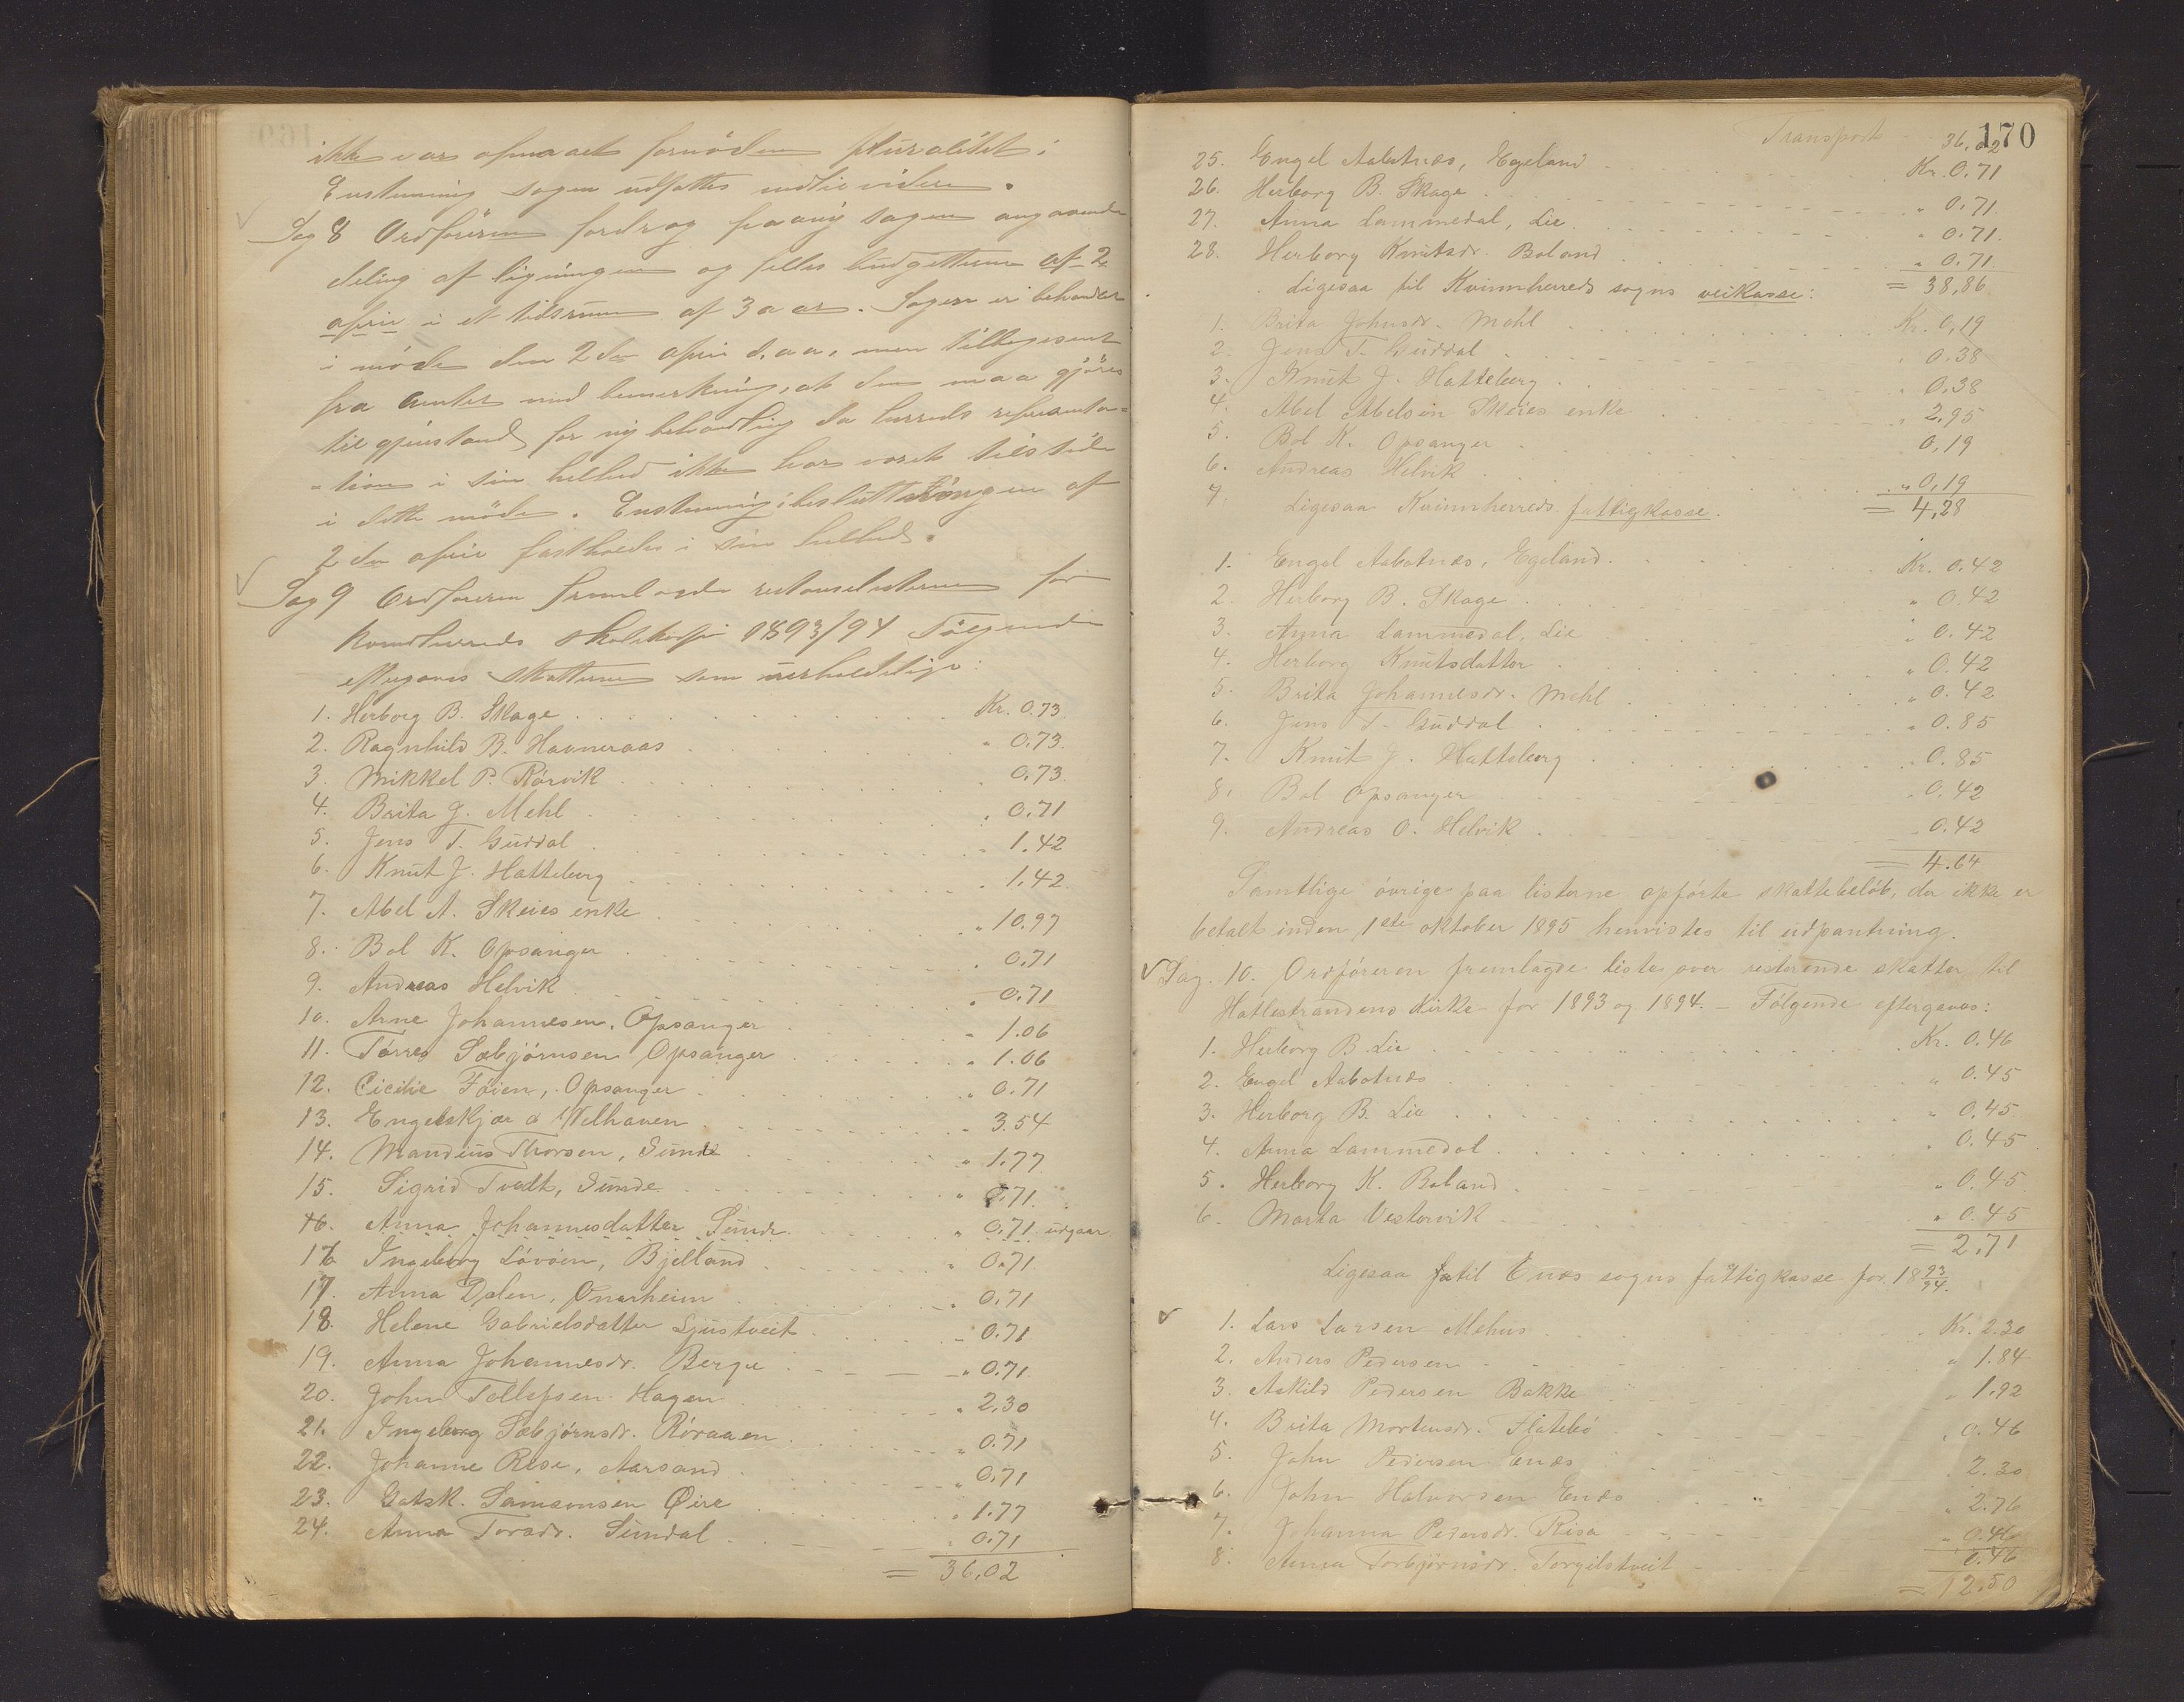 ikke var opnaaet fornöden pluralitet i
Enstemig sagen udsattes indtil videre.
Sag 8 Ordföreren fordrog paany sagen angaaende
deling af ligningen og felles budgetterne af 2
april i et tidsrum af 3 aar. Sagen er behandlet
i möde den 2den april d.aa. men tilbagesent
fra amtet med bemerkning, at den maa gjöres
til gjenstand for ny behandling da herreds representa-
-tion i sin helhed ikke har voret tilstede
i dette möde. Enstemig: beslutningen af
2den april fastholdes i sin helhed.
Sag 9 Ordföreren fremlagde restanselisterne for
Kvindherreds skolekasse 1893/94 Fölgende
eftergaves skatterne som uerholdelige:
1. Herborg B. Skage Kr. 0.73
2. Ragnhild B. Havneraas " 0.73.
3. Mikkel P. Rörvik 0.73.
4. Brita J. Mehl " 0.71
5. Jens T. Guddal " 1.42
6. Knut J. Hatteberg " 1.42.
7. Abel A. Skeies enke " 10.97
8. Bol K. Opsanger " 0.71
9. Andreas Helvik " 0.71
10. Arne Johannesen, Opsanger " 1.06
11. Törres Sæbjörnsen Opsanger " 1.06
12. Cicilie Föien, Opsanger " 0.71
13. Engelskjær & Welhaven " 3.54
14. Mandius Thorsen, Sunde " 1.77
15. Sigrid Tvedt, Sunde " 0.71.
16. Anna Johannesdatter Sunde " 0.71 udgaar
16 Ingeborg Lövöen, Bjelland " 0.71
17. Anna Dalen, Ønarheim " 0.71
18. Helene Gabrielsdatter Ljustveit " 0.71
19. Anna Johannesdr. Berge " 0.71
20. John Tellefsen Hagen " 2.30
21. Ingeborg Sæbjörnsdr. Röraaen " 0.71
22. Johanne Rise, Aarsand " 0.71
23. Gotsk. Samsonsen Øire " 1.77
24. Anna Torsdr. Sundal " 0.71
= 36,02
170
Transport 36,02
25. Engel Aabotnæs, Egeland Kr. 0.71
26. Herborg B. Skage " 0.71.
27. Anna Lammedal, Lie " 0.71.
28. Herborg Knutsdr. Boland " 0.71.
Ligesaa til Kvinnherreds sogns veikasse: = 38,86
1. Brita Johnsdr. Mehl Kr. 0,19
2. Jens T. Guddal " 0.38
3. Knut J. Hatteberg " 0.38
4. Abel Abelsen Skeies enke " 2,95
5. Bol K. Opsanger 0,19
6. Andreas Helvik " 0,19
7. Ligesaa Kvinnherreds fattigkasse. = 4,28
1. Engel Aabotnæs, Egeland. Kr. 0.42
2. Herborg B. Skage " 0.42
3. Anna Lammedal, Lie " 0.42
4. Herborg Knutsdatter " 0.42
5. Brita Johannesdr. Mehl " 0.42
6. Jens T. Guddal " 0.85
7. Knut J. Hatteberg " 0.85
8. Bol Opsanger " 0.42
9. Andreas O. Helvik 0.42
= 4.64
Samtlige övrige paa listerne opförte skattebelöb, der ikke er
betalt inden 1ste oktober 1895 henvistes til udpantning.
Sag. 10. Ordföreren fremlagde liste over resterende skatter til
Hatlestrandens kirke for 1893 og 1894. – Fölgende eftergaves:
1. Herborg B. Lie Kr. 0.46
2. Engel Aabotnæs " 0.45
3. Herborg B. Lie " 0.45
4. Anna Lammedal " 0.45
5. Herborg K. Boland " 0.45
6. Marta Vestervik " 0.45
= 2.71
Ligesaa til Enæs sogns fattigkasse for 1893/94.
1. Lars Larsen Mehus Kr. 2.30
2. Anders Pedersen " 1.84
3. Askild Pedersen Bakke " 1.92
4. Brita Mortensdr. Flatebö " 0.46
5. John Pedersen Enæs " 2.30
6. John Halvorsen Enæs " 2.76
7. Johanna Pedersdr. Risa " 0.46
8. Anna Torbjörnsdr. Torgilstveit 0.46
= 12.50